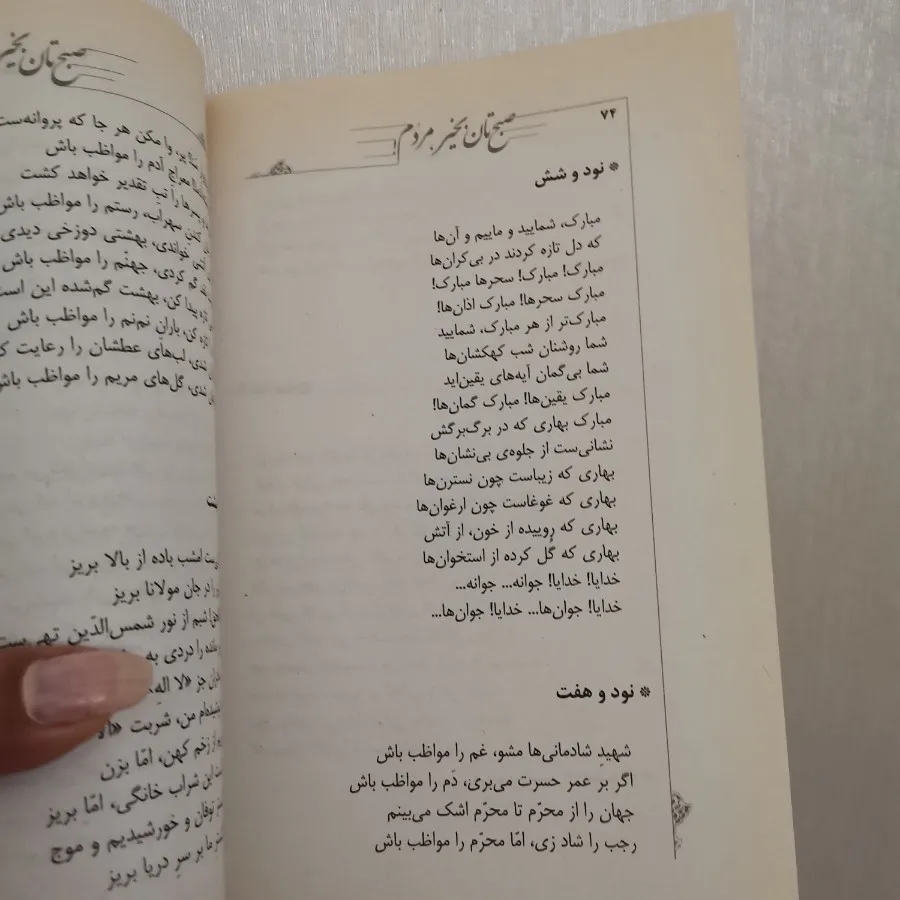 ۷۴
صبح‌تان بخیر مردم!
* نود و شش
مبارک، شمایید و ماییم و آن‌ها
که دل تازه کردند در بی‌کران‌ها
مبارک! مبارک! سحرها مبارک!
مبارک سحرها! مبارک اذان‌ها!
مبارک‌تر از هر مبارک، شمایید
شما روشنان شب کهکشان‌ها
شما بی‌گمان آیه‌های یقین‌اید
مبارک یقین‌ها! مبارک گمان‌ها!
مبارک بهاری که در برگ‌برگش
نشانی‌ست از جلوه‌ی بی‌نشان‌ها
بهاری که زیباست چون نسترن‌ها
بهاری که غوغاست چون ارغوان‌ها
بهاری که روییده از خون، از آتش
بهاری که گل کرده از استخوان‌ها
خدایا! خدایا! جوانه... جوانه...
خدایا! جوان‌ها... خدایا! جوان‌ها...
* نود و هفت
شهیدِ شادمانی‌ها مشو، غم را مواظب باش
اگر بر عمر حسرت می‌بری، دَم را مواظب باش
جهان را از محرّم تا محرّم اشک می‌بینم
رجب را شاد زی، امّا محرّم را مواظب باش
صبح‌تان بخیر
بر، وا مکن هر جا که پروانه‌ست
معراج آدم را مواظب باش
را تبِ تقدیر خواهد کشت
سهراب، رستم را مواظب باش
خواندی، بهشتی دوزخی دیدی
گم کردی، جهنّم را مواظب باش
پیدا کن، بهشت گم‌شده این است
کن، بارانِ نم‌نم را مواظب باش
شدی، لب‌های عطشان را رعایت
شدی، گل‌های مریم را مواظب باش
امشب باده از بالا بریز
در جان مولانا بریز
از نور شمس‌الدّین
را دردی به
جز «لا اله
من، شربت «الا
از زخم کهن، امّا بزن
این شراب خانگی، امّا بریز
توفان و خورشیدیم و موج
ما بر سرِ دریا بریز